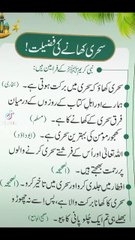 سحری کھانے کی فضیلت!
نبی کریم ﷺ کے فرامین ہیں:
سحری کھاؤ کہ سحری میں برکت ہوتی ہے۔ (بخاری)
ہمارے اور اہل کتاب کے روزوں کے درمیان
فرق سحری کے کھانے کا ہے۔ (مسلم)
سحور مومن کی بہترین سحری ہے۔ (ابوداؤد)
اللہ تعالیٰ اور اُس کے فرشتے سحری کرنے والوں
پر رحمت بھیجتے ہیں۔
افطار میں جلدی کرو اور سحری میں تاخیر کرو۔
سحری کا کھانا برکت والا ہے، پس اسے نہ چھوڑو
بھلے ہی تم ایک چلو پانی کا پیو۔